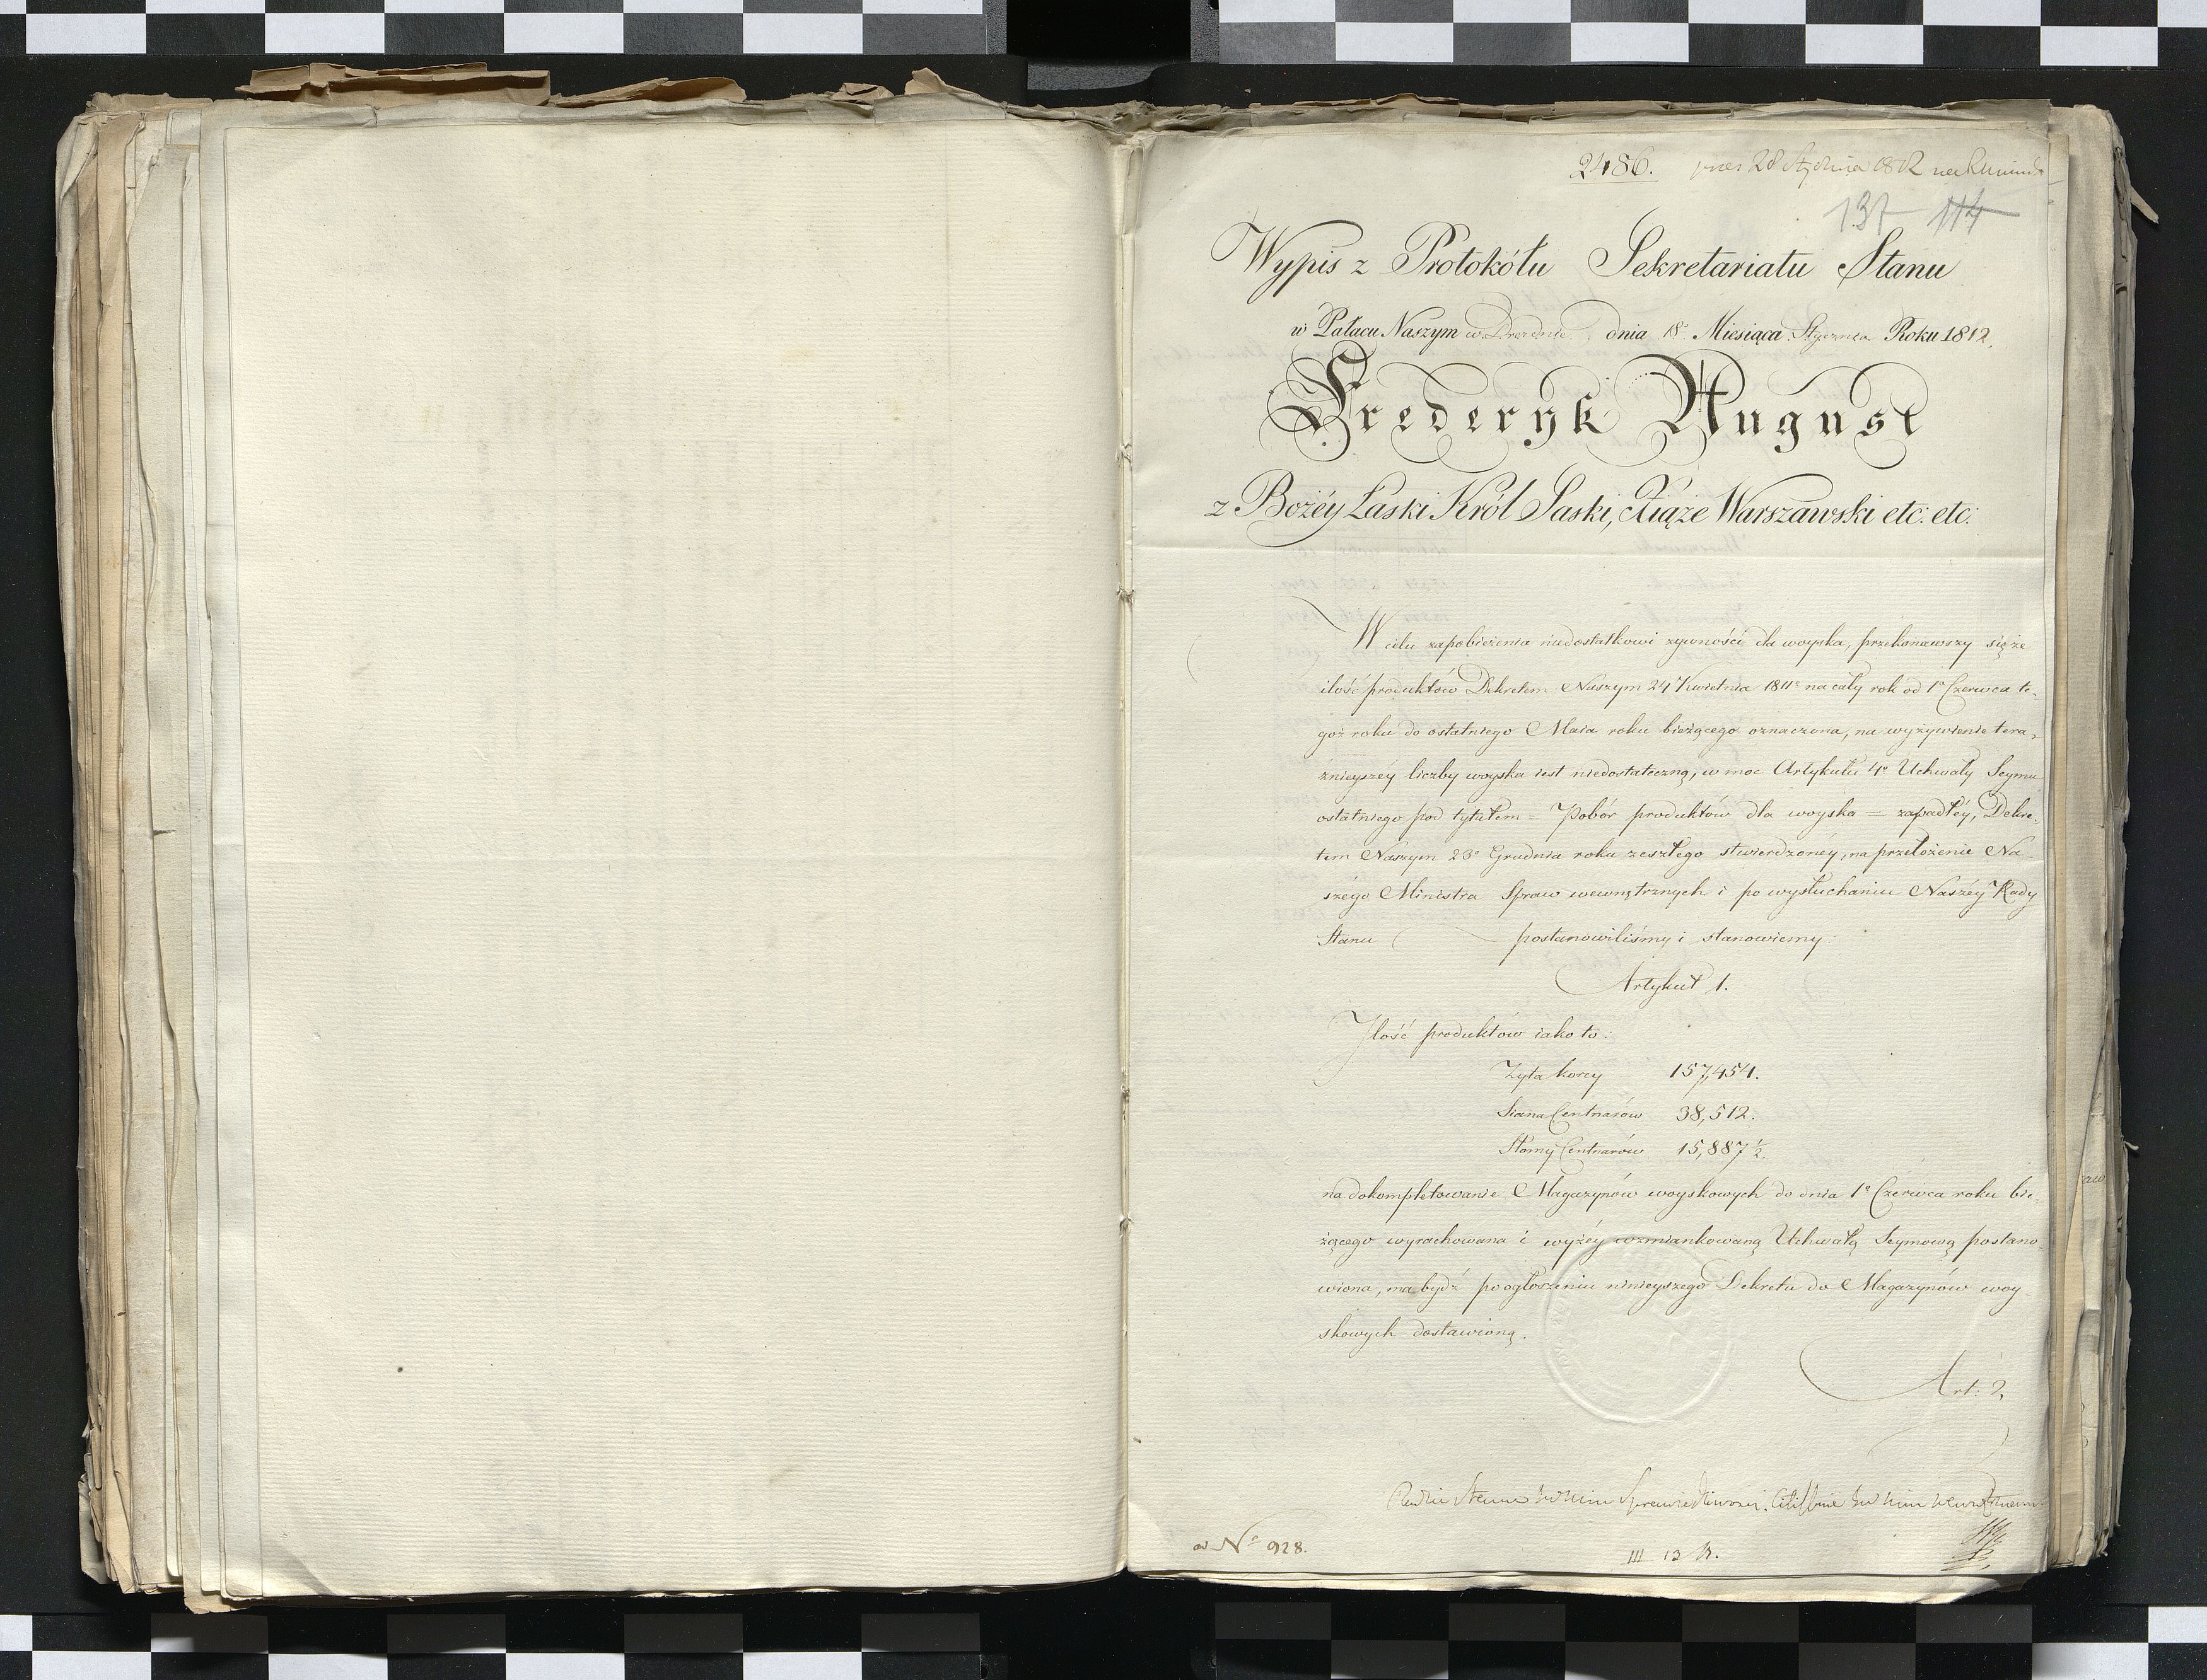 2486. 28 Stycznia 1812
137 114
Wypis z Protokółu Sekretariatu Stanu
w Pałacu Naszym w Dreznie dnia 18o Miesiąca Stycznia Roku 1812.
Frederyk August
z Bożéy Łaski Król Saski, Xiąże Warszawski etc: etc:
W celu zapobieżenia niedostatkowi żywności dla woyska, przekonawszy się że
ilość produktów Dekretem Naszym 24 Kwietnia 1811o na cały rok od 1o Czerwca te-
goż roku do ostatniego Maia roku bieżącego oznaczona, na wyżywienie tera-
źnieyszéy liczby woyska iest niedostateczną, w moc Artykułu 4o Uchwały Seymu
ostatniego pod tytułem = Pobór produktów dla woyska = zapadłéy, Dekre-
tem Naszym 23o Grudnia roku zeszłego stwierdzonéy, na przełożenie Na-
szego Ministra Spraw wewnętrznych i po wysłuchaniu Naszéy Rady
Stanu postanowiliśmy i stanowiemy:
Artykuł 1.
Ilość produktów iako to:
Żyta korcy 157,454.
Siana Centnarów 38,512.
Słomy Centnarów 15,887 1/2.
na dokompletowanie Magazynów woyskowych do dnia 1o Czerwca roku bie-
żącego wyrachowana i wyżéy wzmiankowaną Uchwałą Seymową postano-
wiona, ma bydź po ogłoszeniu ninieyszego Dekretu do Magazynów woy-
skowych dostawioną.
Art: 2.
Radzie Stanu Sprawiedliwości
ad No 928. III 13